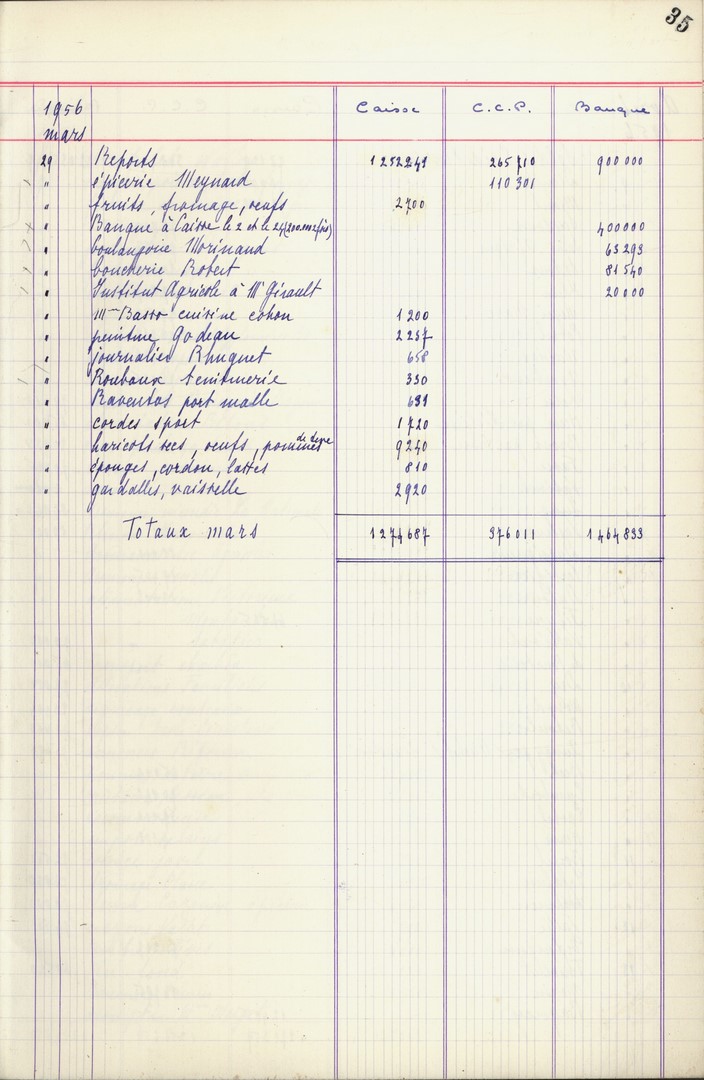 35
1956
mars
Caisse C.C.P. Banque
29 Reports 1252241 265710 900000
" épicerie Meynard 110301
" fruits, fromage, oeufs 2700
" Banque à Caisse le 2 et le 24 (200.000 fois) 400000
" boulangerie Morinaud 63293
" boucherie Robert 81540
" Institut Agricole à Mr Girault 20000
" Mme Basso cuisine cohon 1200
" peinture Godeau 2257
" journalier Bruguet 638
" Roubaux teinturerie 330
" Raventos port malle 631
" cordes sport 1720
" haricots secs, oeufs, pommes de terre 9240
" éponges, cordon, lattes 810
" gardalles, vaisselle 2920
Totaux mars 1274687 376011 1464833